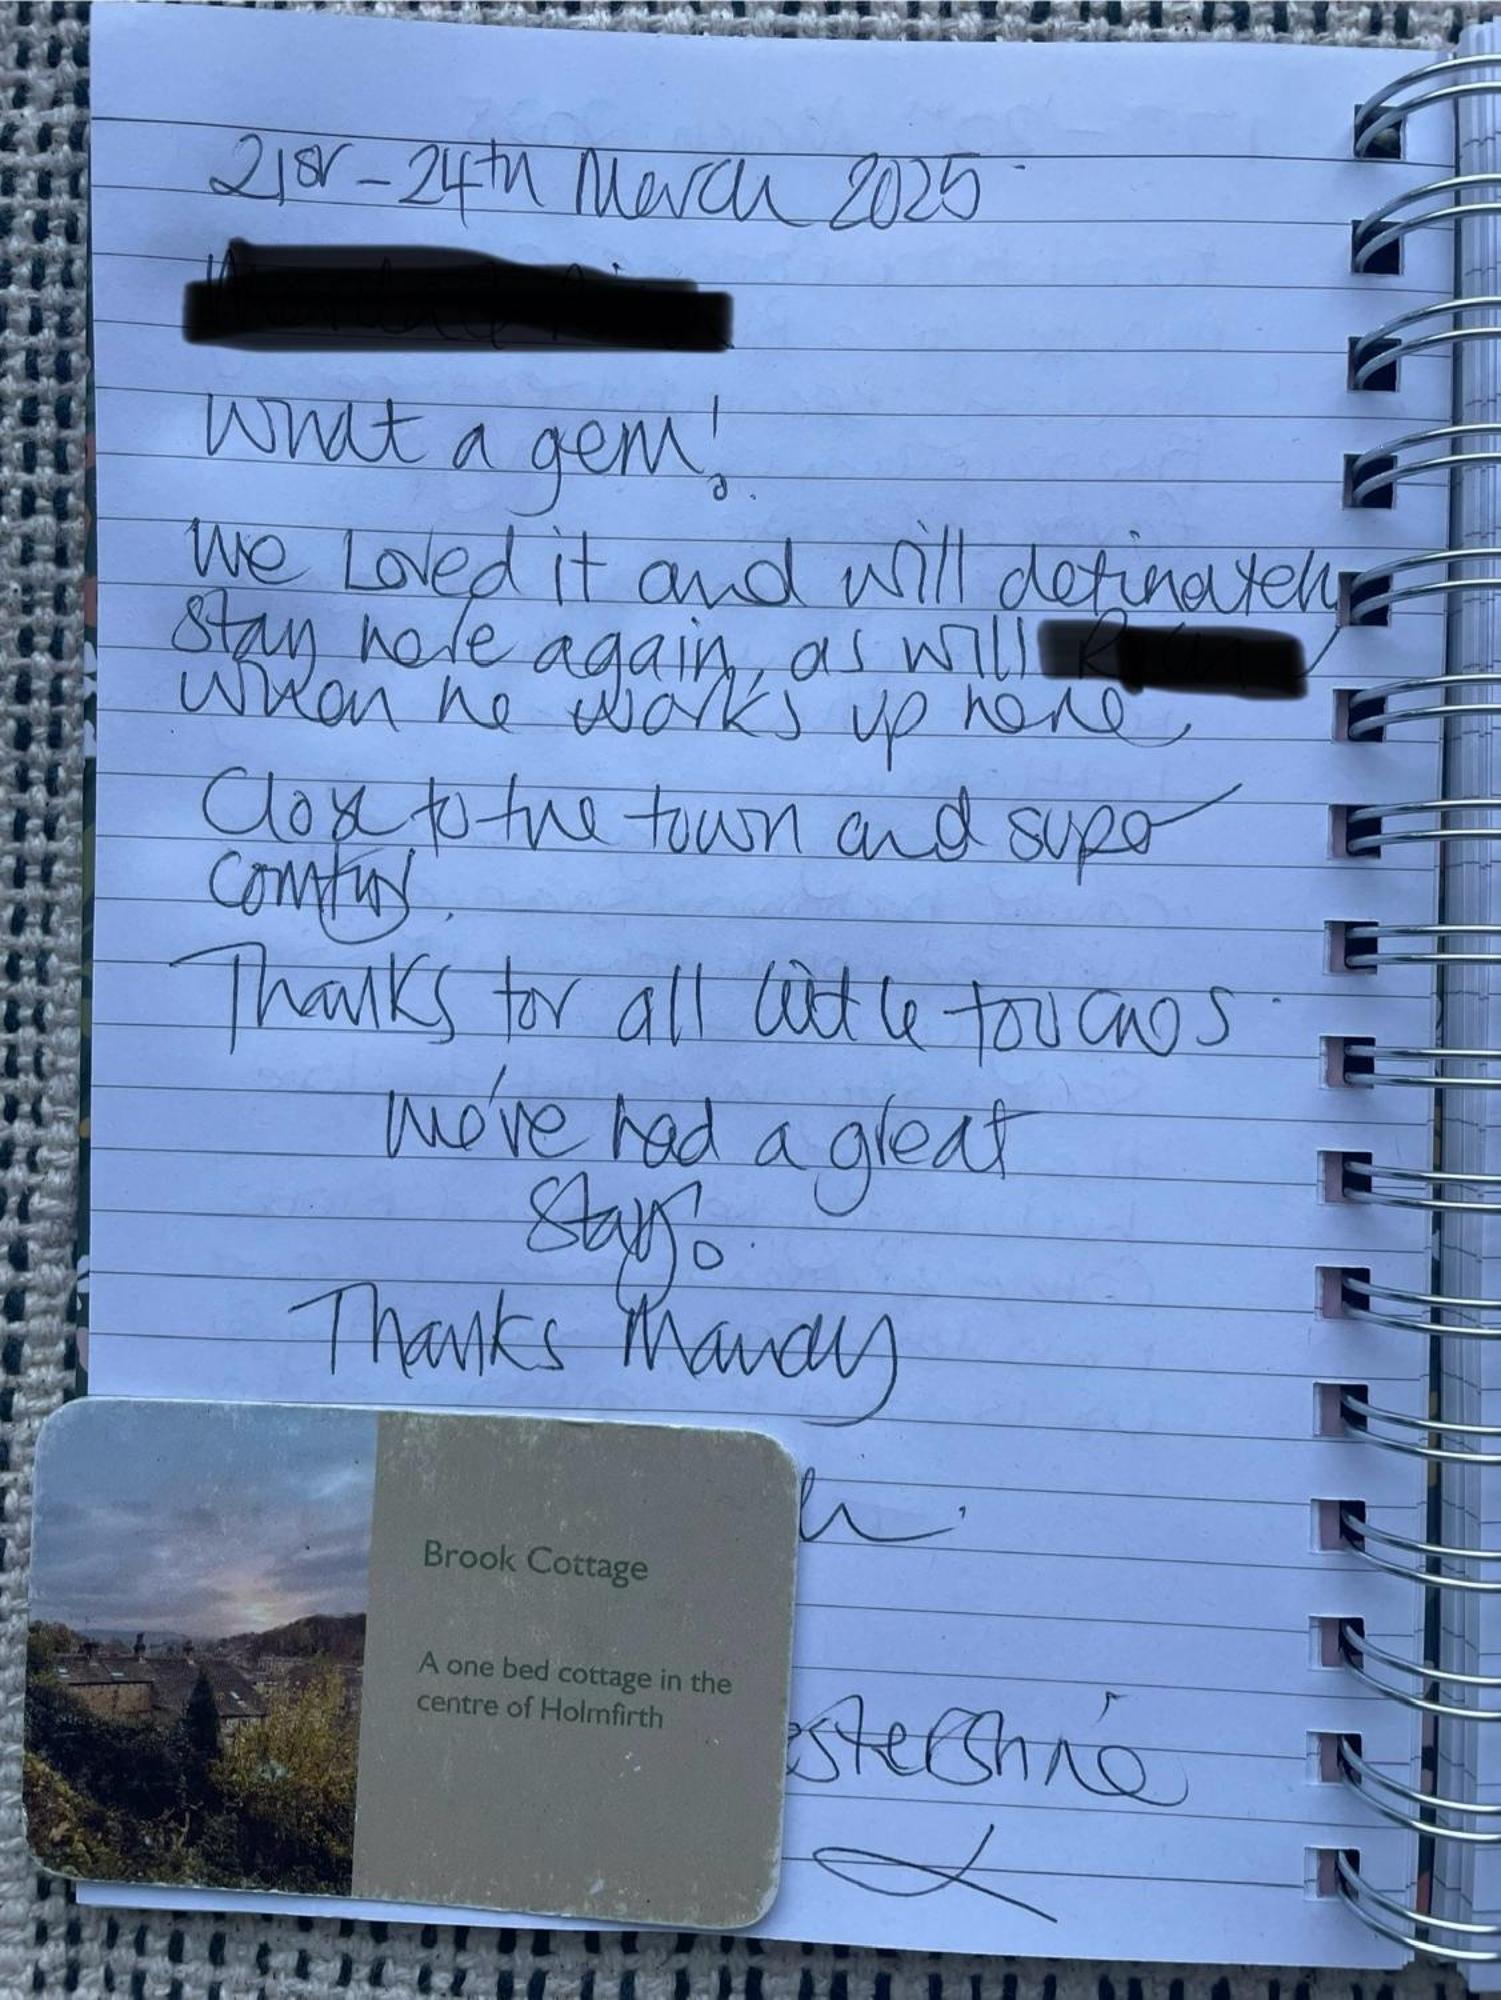 21st - 24th March 2025
What a gem!
We Loved it and will definately
stay here again, as will
when he works up here.
Close to the town and super
comfy!
Thanks for all little touches.
We've had a great
stay!
Thanks Mandy
Brook Cottage
A one bed cottage in the
centre of Holmfirth
estershire